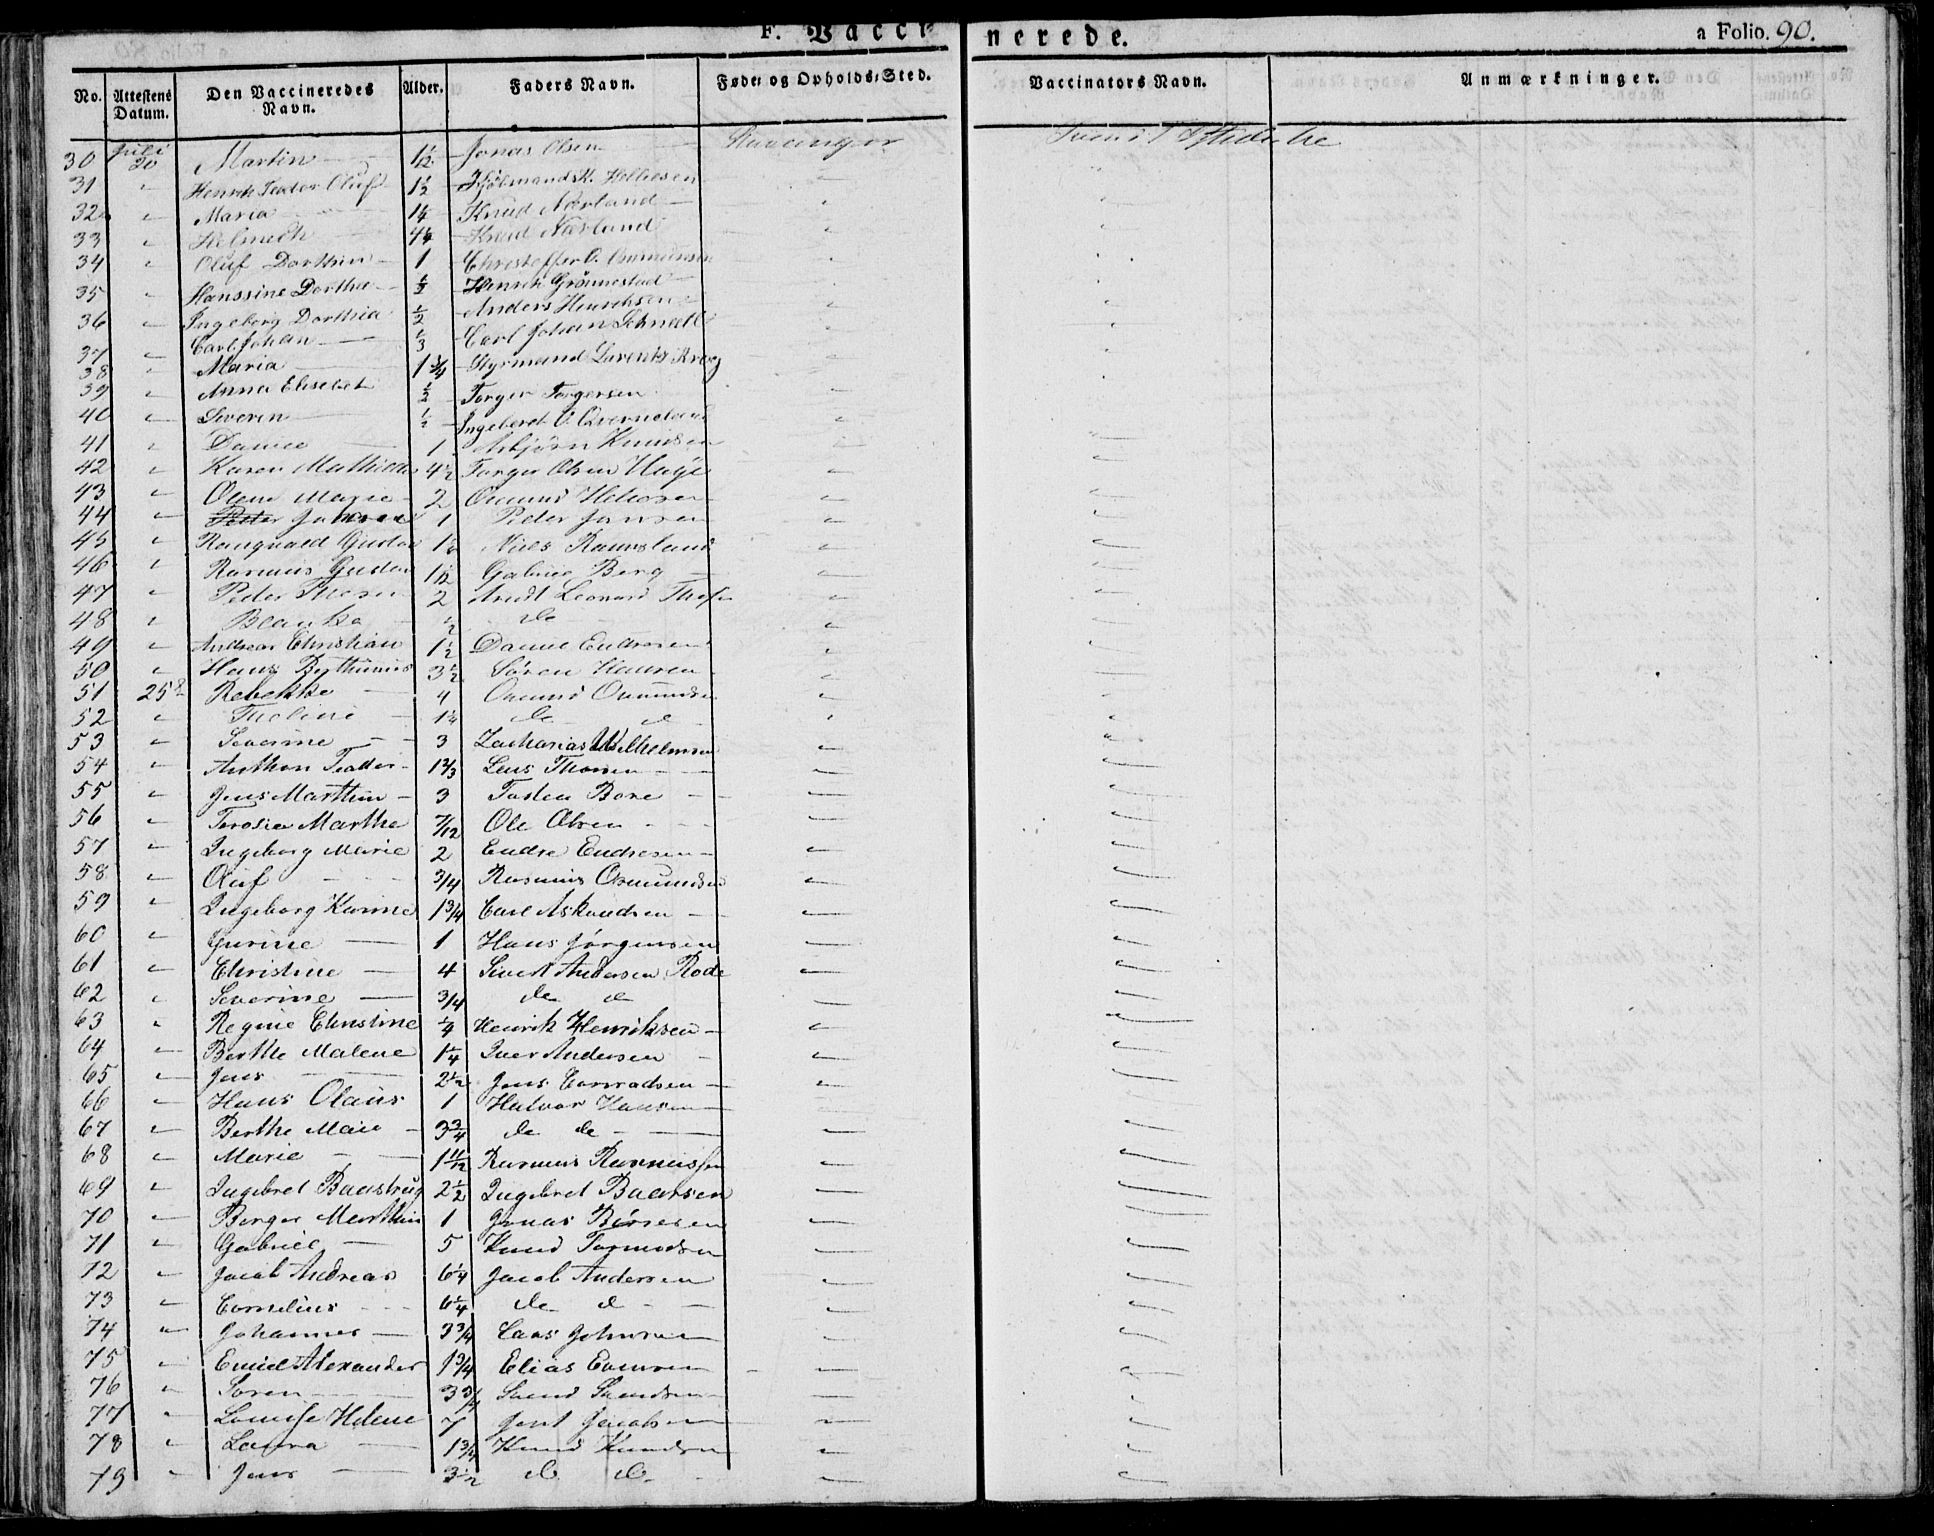 F. Vaccinerede. a Folio. 90.
No. Attestens Datum. Den Vaccineredes Navn. Alder. Faders Navn. Føde- og Opholds-Sted. Vaccinators Navn. Anmærkninger.
30 Juli 20 Martin — 1 1/12 Jonas Olsen Stavanger
31 " Henrik Teodor Oluf 1 1/2
32 " Maria 1 1/4 Knud Nærland —
33 " Helmich Knud Nærland
34 " Oluf Dorthin — 1 Christoffer O.
35 " Hanssine Dorthea — 1/3 Henrik Grønnestad
36 " Ingeborg Dorthia 1/2 Anders Henrichsen
37 " Carl Johan — 1/3 Carl Johan
38 " Maria 1 3/4 Styrmand
39 " Anna Elisebet 1/2 Torger Torgersen
40 " Severin 1/2 Ingebret O.
41 " Daniel 1 Asbjørn Knudsen
42 " Karen Mathilde 4 1/2 Torger Olsen
43 " Olene Marie — 2 Osmund
44 " 1 Peder Jansen
45 " Rangvald Gustav 1 1/2 Niels
46 " Rasmus Gustav 1 1/12 Gabriel Berg
47 " Peder 2 Arndt Leonard
48 " Blanka 1/2 do —
49 " Andreas Christian 1 1/2 Daniel Endresen
50 " Hans 3 1/2 Søren Hansen
51 25 Rebekke — 4 Osmund Osmundsen
52 " Tholine — 1 1/4 do do
53 " Severine — 3 Zacharias Wilhelmsen
54 " Anthon Teodor — 1 2/3 Lars Thorsen —
55 " Jens Marthin — 3 Tosten Bore —
56 " Terosia Marthe 7/12 Ole Olsen —
57 " Ingeborg Marie 2 Endre Endresen —
58 " Oluf 3/4 Rasmus Osmundsen
59 " Ingeborg Karine 1 3/4 Carl —
60 " Gurine — 1 Hans Jørgensen
61 " Christine — 4 Sivert Andersen Rode
62 " Severine — 3/4 do do
63 " Regine Christine 1/4 Henrik Henriksen —
64 " Berthe Malene 1 1/4 Iver Andersen —
65 " Jens — 2 1/2 Jens Conradsen —
66 " Hans Olaus 1 Halvor Hansen —
67 " Berthe Marie — 3 3/4 do do —
68 " Marie — 1 11/12 Rasmus Rasmussen
69 " Ingebret Baastrup 2 1/2 Ingebret Baarsen
70 " Berger Marthin 1 Jonas
71 " Gabriel — 5 Knud Tormodsen
72 " Jacob Andreas 6 1/4 Jacob Andersen
73 " Cornelius 6 1/4 do do —
74 " Johannes — 3 3/4 Lars Johnsen
75 " Emiel Alexander 1 3/4 Elias
76 " Soren — 3 3/4
77 " Louise Helene 7
78 " Laura — 1 3/4 Knud Knudsen
79 " Jens — 3 1/2 do do